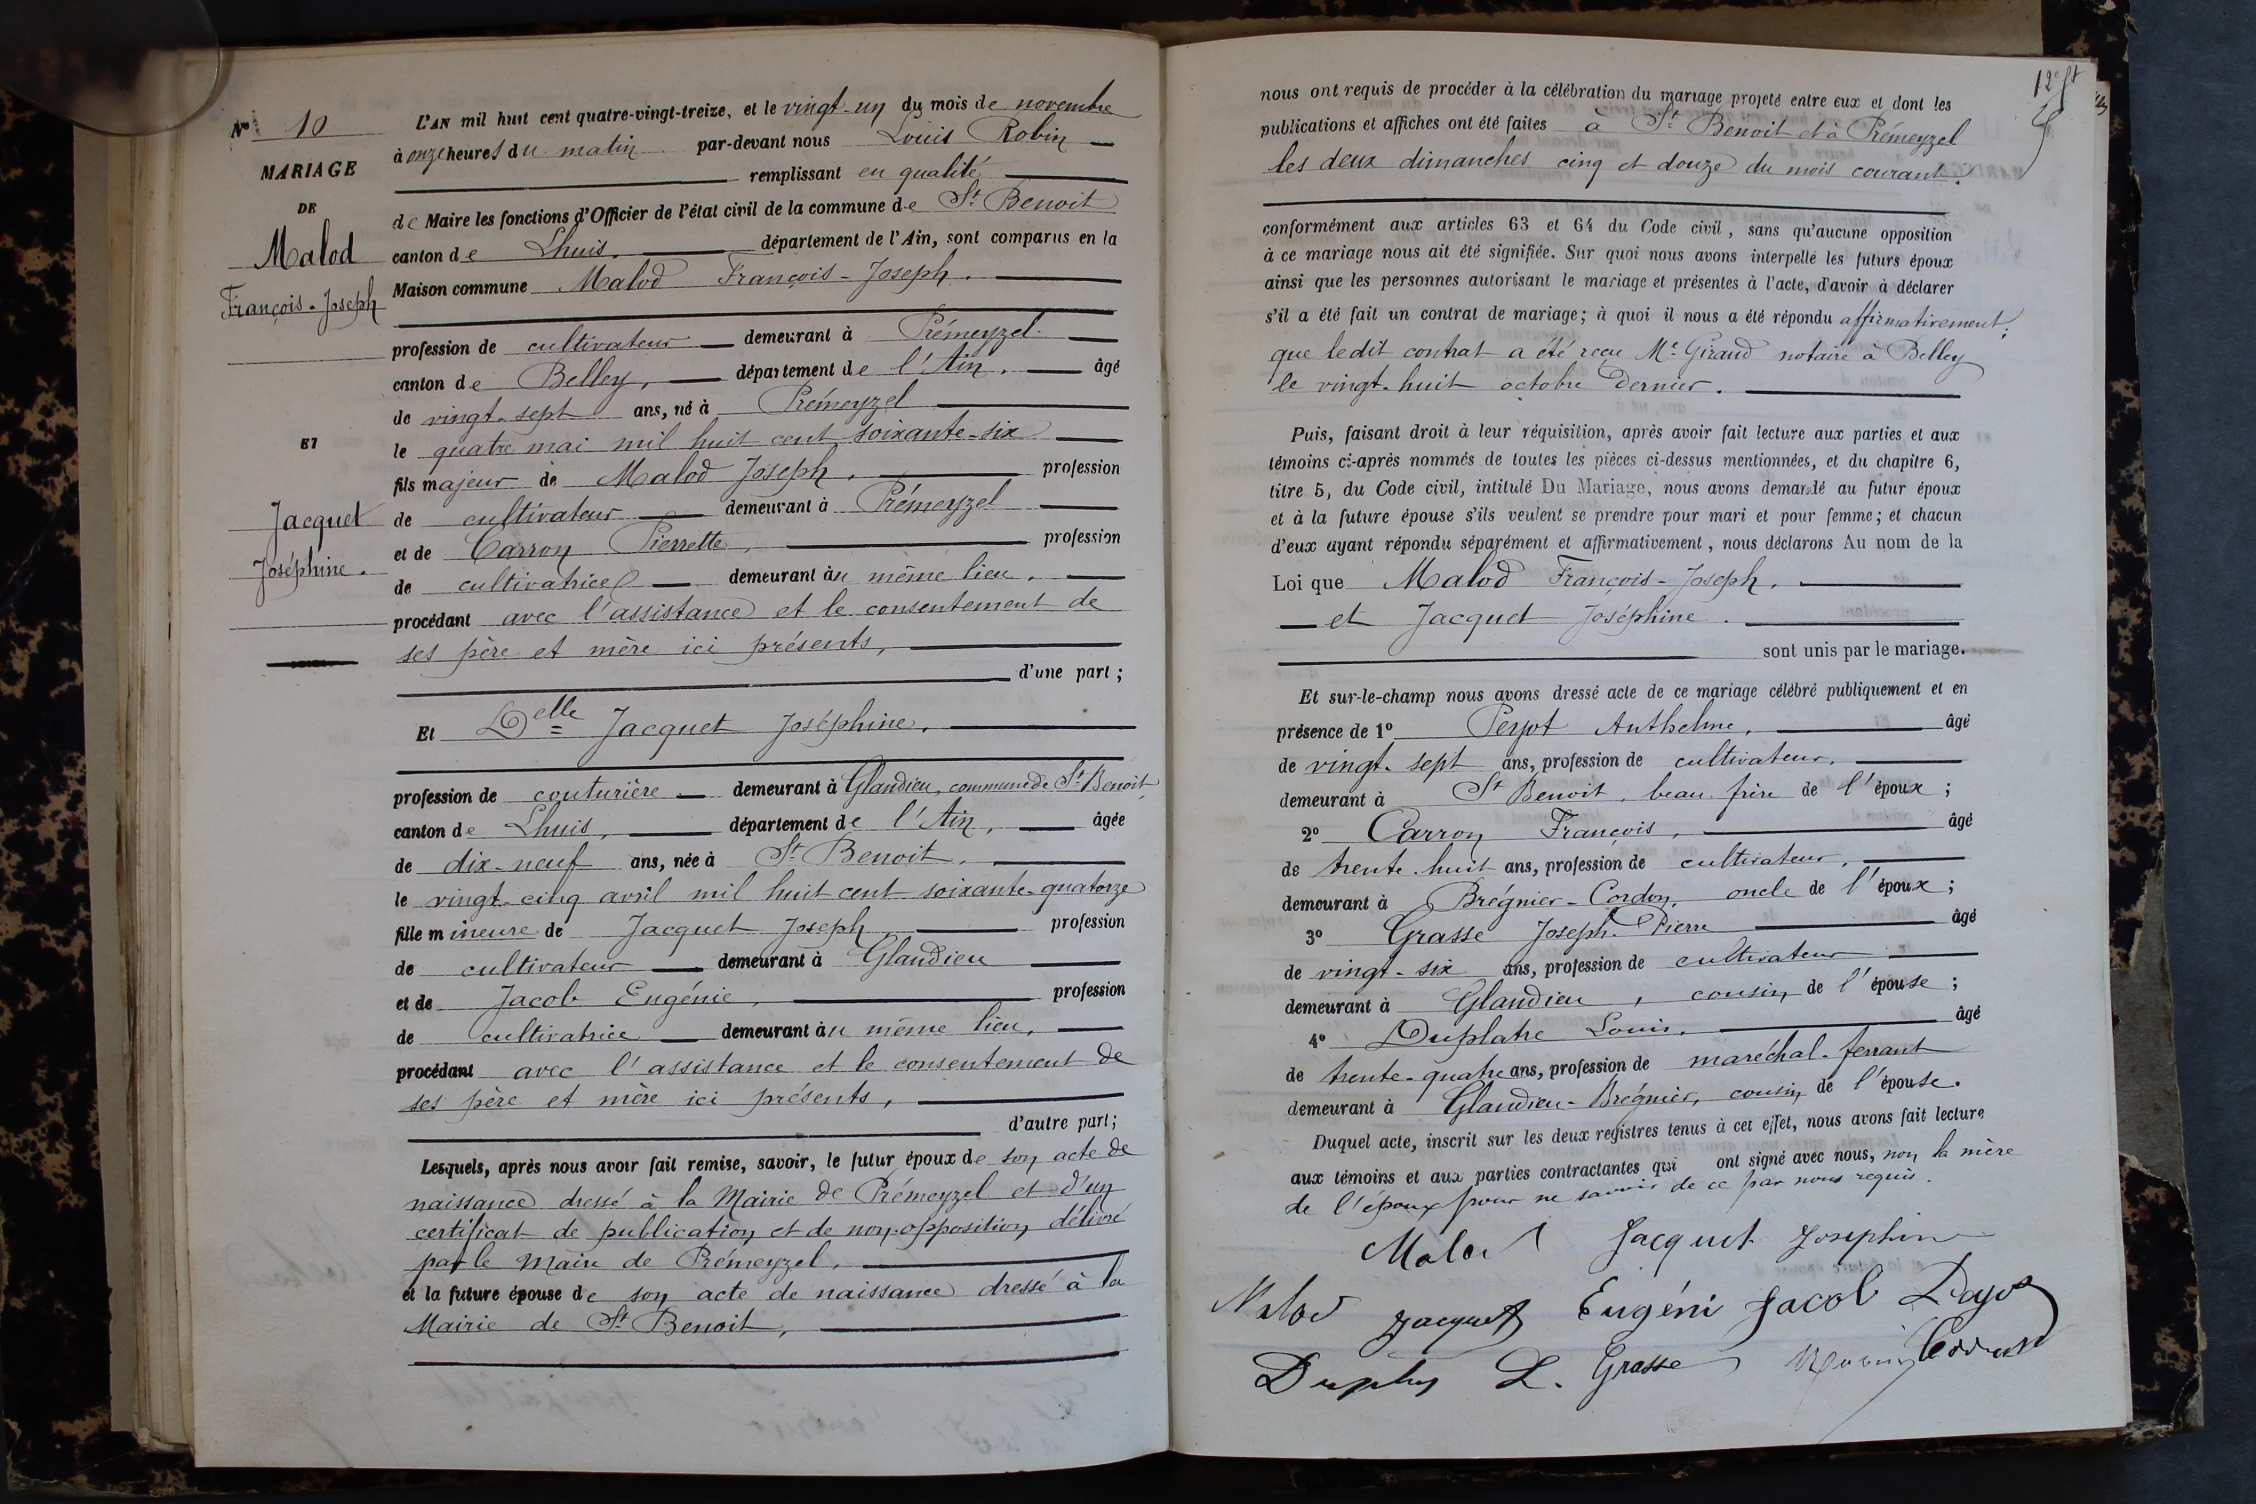 N° 10
MARIAGE
DE
Malod
François-Joseph
ET
Jacquet
Joséphine.
L'AN mil huit cent quatre-vingt-treize, et le vingt-un du mois de novembre
à onze heures du matin par-devant nous Louis Robin
remplissant en qualité
de Maire les fonctions d'Officier de l'état civil de la commune de St Benoit
canton de Lhuis, département de l'Ain, sont comparus en la
Maison commune Malod François-Joseph.
profession de cultivateur demeurant à Prémeyzel
canton de Belley, département de l'Ain, âgé
de vingt-sept ans, né à Prémeyzel
le quatre mai mil huit cent soixante-six
fils majeur de Malod Joseph, profession
de cultivateur demeurant à Prémeyzel
et de Carron Pierrette, profession
de cultivatrice demeurant au même lieu,
procédant avec l'assistance et le consentement de
ses père et mère ici présents,
d'une part;
Et Delle Jacquet Joséphine,
profession de couturière demeurant à Glandieu, commune de St Benoit
canton de Lhuis, département de l'Ain, âgée
de dix-neuf ans, née à St Benoit,
le vingt-cinq avril mil huit cent soixante-quatorze
fille mineure de Jacquet Joseph, profession
de cultivateur demeurant à Glandieu
et de Jacob Eugénie, profession
de cultivatrice demeurant au même lieu,
procédant avec l'assistance et le consentement de
ses père et mère ici présents,
d'autre part;
Lesquels, après nous avoir fait remise, savoir, le futur époux de son acte de
naissance dressé à la Mairie de Prémeyzel et d'un
certificat de publication et de non-opposition délivré
par le Maire de Prémeyzel,
et la future épouse de son acte de naissance dressé à la
Mairie de St Benoit,
12e ft
nous ont requis de procéder à la célébration du mariage projeté entre eux et dont les
publications et affiches ont été faites à St Benoit et à Prémeyzel
les deux dimanches cinq et douze du mois courant.
conformément aux articles 63 et 64 du Code civil, sans qu'aucune opposition
à ce mariage nous ait été signifiée. Sur quoi nous avons interpellé les futurs époux
ainsi que les personnes autorisant le mariage et présentes à l'acte, d'avoir à déclarer
s'il a été fait un contrat de mariage; à quoi il nous a été répondu affirmativement;
que ledit contrat a été reçu Me Giraud notaire à Belley
le vingt-huit octobre dernier.
Puis, faisant droit à leur réquisition, après avoir fait lecture aux parties et aux
témoins ci-après nommés de toutes les pièces ci-dessus mentionnées, et du chapitre 6,
titre 5, du Code civil, intitulé Du Mariage, nous avons demandé au futur époux
et à la future épouse s'ils veulent se prendre pour mari et pour femme; et chacun
d'eux ayant répondu séparément et affirmativement, nous déclarons Au nom de la
Loi que Malod François-Joseph,
et Jacquet Joséphine.
sont unis par le mariage.
Et sur-le-champ nous avons dressé acte de ce mariage célébré publiquement et en
présence de 1° Peyot Anthelme, âgé
de vingt-sept ans, profession de cultivateur,
demeurant à St Benoit, beau-frère de l'époux;
2° Carron François, âgé
de trente-huit ans, profession de cultivateur,
demeurant à Brégnier-Cordon, oncle de l'époux;
3° Grasse Joseph-Pierre âgé
de vingt-six ans, profession de cultivateur
demeurant à Glandieu, cousin de l'épouse;
4° Duplatre Louis, âgé
de trente-quatre ans, profession de maréchal-ferrant
demeurant à Glandieu-Brégnier, cousin de l'épouse.
Duquel acte, inscrit sur les deux registres tenus à cet effet, nous avons fait lecture
aux témoins et aux parties contractantes qui ont signé avec nous, non la mère
de l'époux pour ne savoir de ce par nous requis.
Malod Jacquet Josephine
Malod Jacquet Eugéni Jacob
L. Grasse Robin Carron